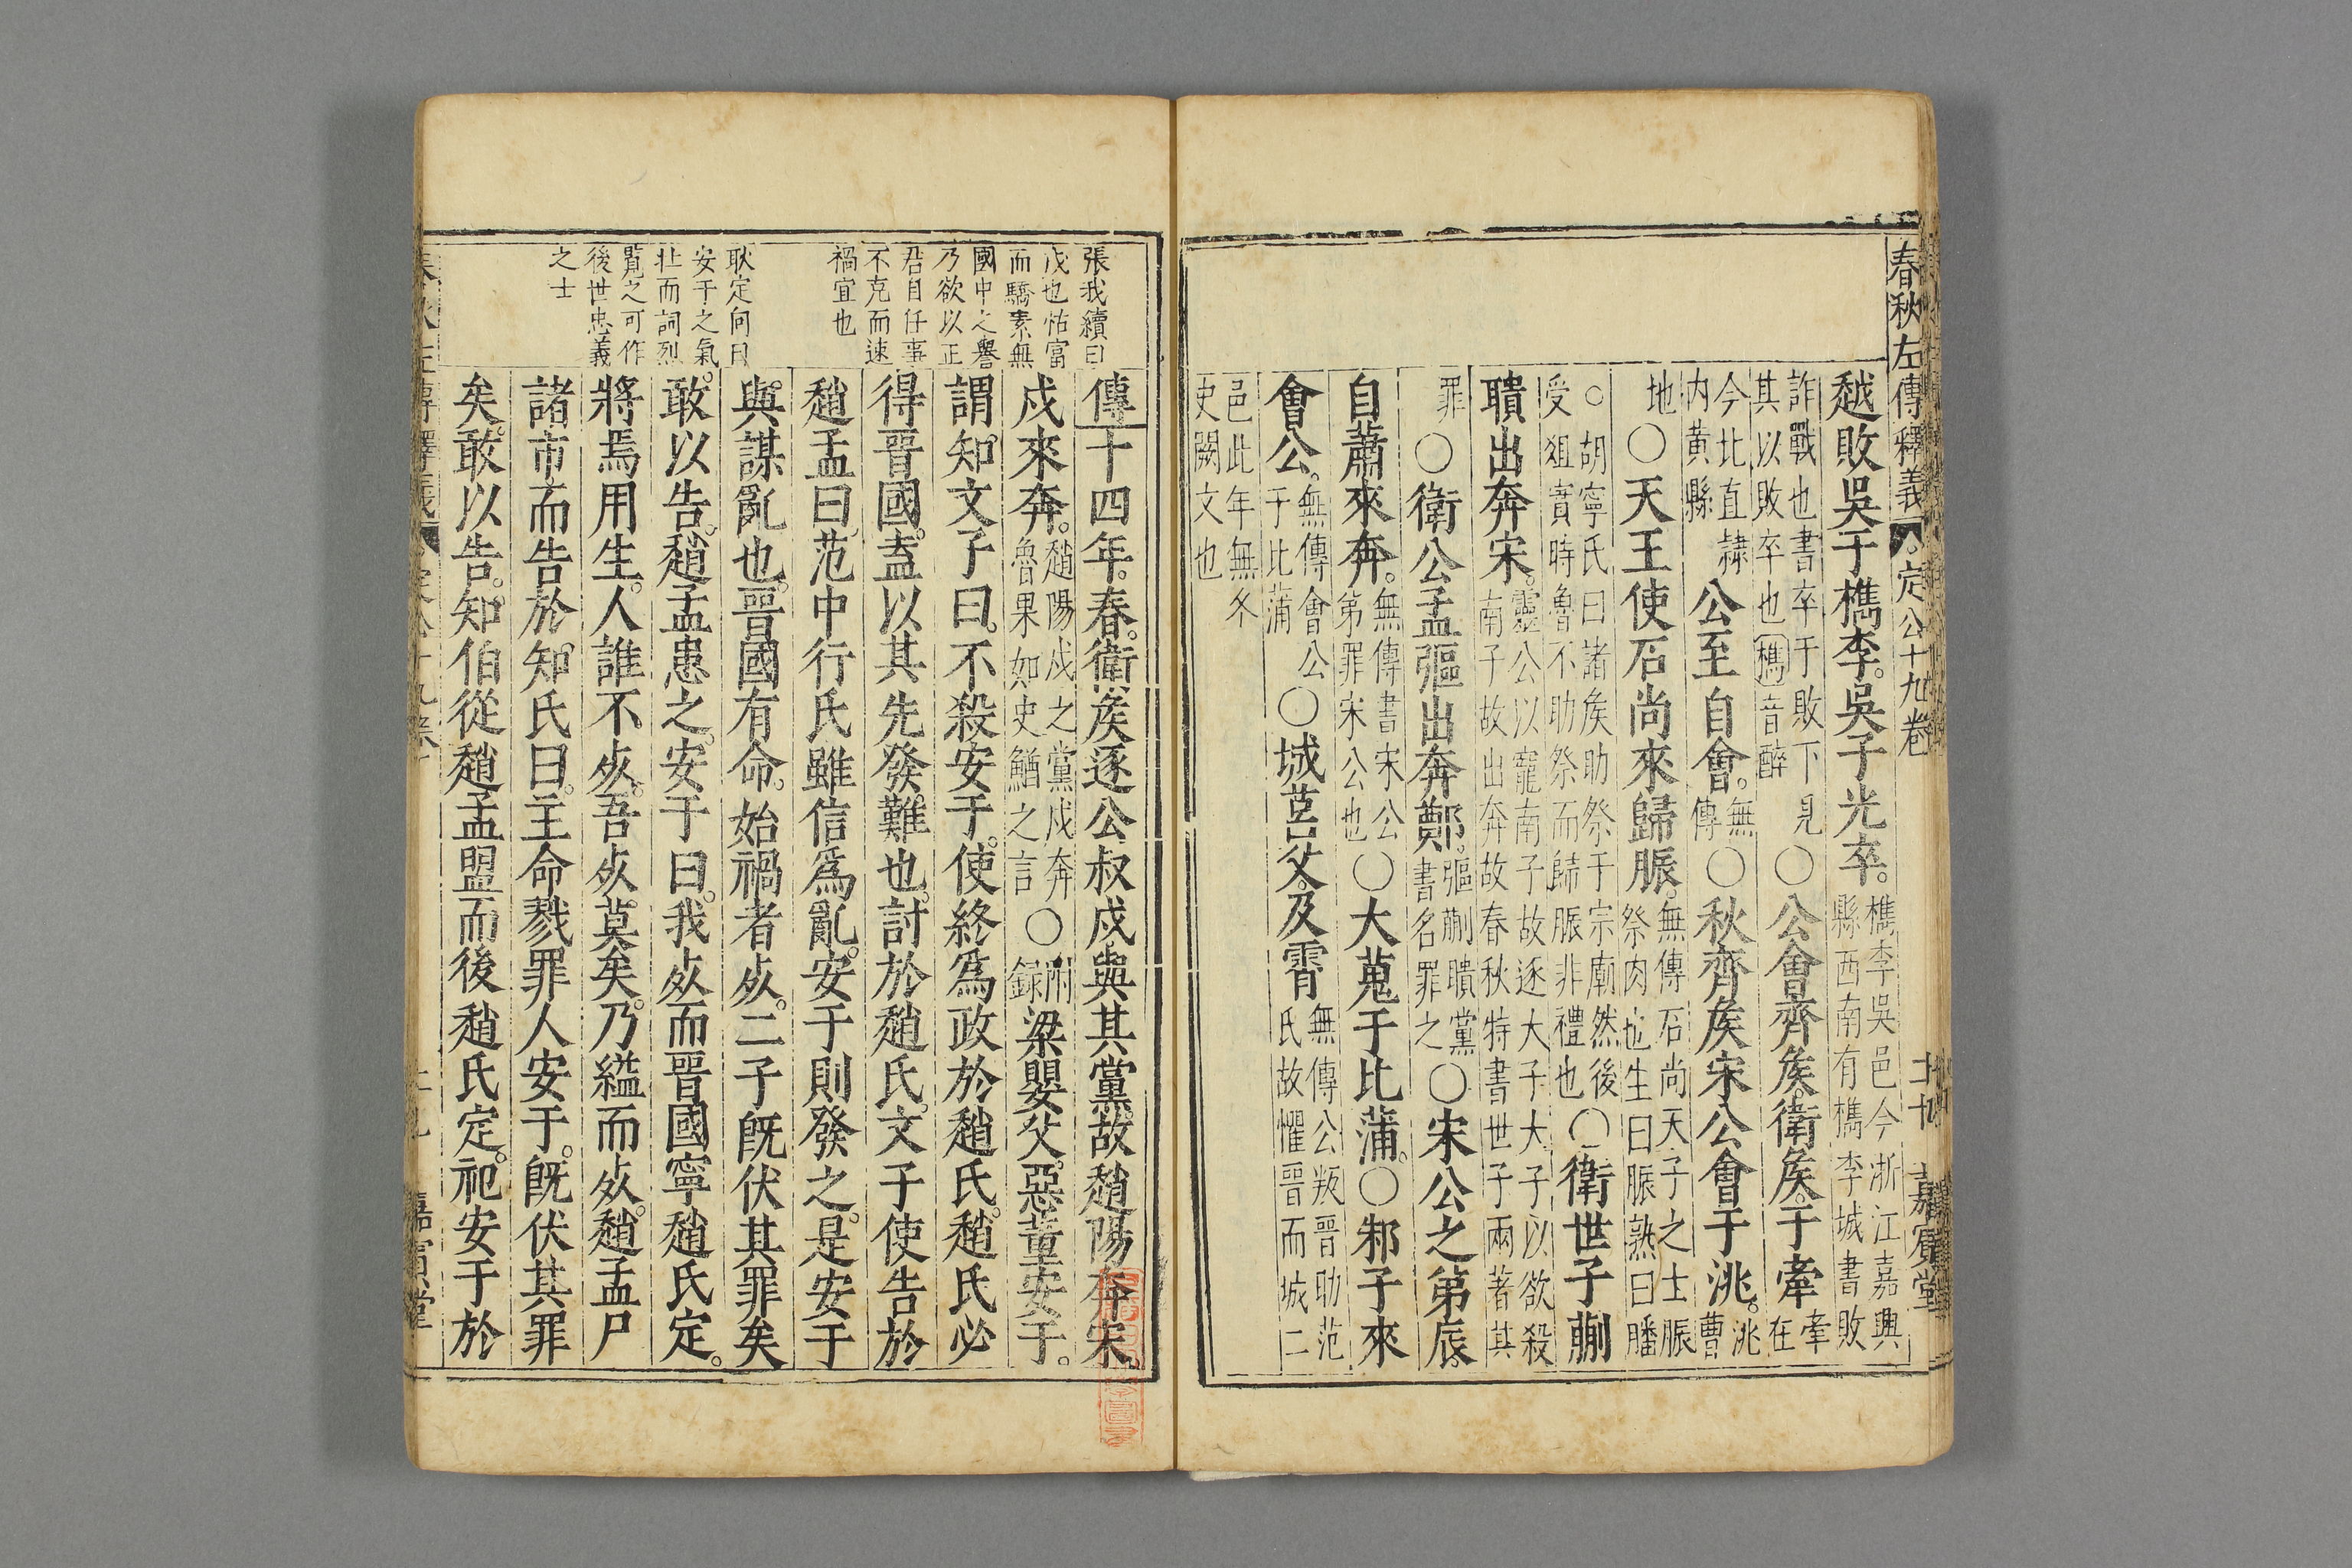 春秋左傳釋義 定公十九卷 十九 嘉賓堂
越敗吳于檇李。吳子光卒。檇李吳邑今浙江嘉興縣西南有檇李城書敗
詐戰也書卒于敗下見其以敗卒也檇音醉〇公會齊矦。衛矦。于牽牽在
今北直隸內黃縣公至自會。無傳〇秋齊矦宋公會于洮。洮曹
地〇天王使石尚來歸脤。無傳石尚天子之士脤祭肉也生曰脤熟曰膰
○胡寧氏曰諸矦助祭于宗廟然後受俎實時魯不助祭而歸脤非禮也〇衛世子蒯
聵出奔宋。靈公以寵南子故逐大子大子以欲殺南子故出奔故春秋特書世子兩著其
罪〇衛公孟彄出奔鄭。彄蒯聵黨書名罪之〇宋公之第辰。
自蕭來奔。無傳書宋公第罪宋公也〇大蒐于比蒲。〇邾子來
會公。無傳會公于比蒲〇城莒父。及霄無傳公叛晉助范氏故懼晉而城二
邑此年無冬史闕文也
張我續曰
戍也怙富
而驕素無
國中之譽
乃欲以正
君自任事
不克而速
禍宜也
耿定向曰
安于之氣
壯而詞烈
覽之可作
後世忠義
之士
傳十四年。春。衛矦逐公叔戍與其黨。故趙陽奔宋。
戍來奔。趙陽戍之黨戍奔魯果如史鰌之言〇附録梁嬰父。惡董安于。
謂知文子曰。不殺安于。使終爲政於趙氏。趙氏必
得晉國。盍以其先發難也。討於趙氏。文子使告於
趙孟曰。范中行氏雖信爲亂。安于則發之。是安于
與謀亂也。晉國有命。始禍者死。二子旣伏其罪矣
敢以告。趙孟患之。安于曰。我死而晉國寧趙氏定。
將焉用生。人誰不死。吾死莫矣。乃縊而死。趙孟尸
諸市而告於知氏曰。主命戮罪人安于。旣伏其罪
矣。敢以告。知伯從趙孟盟而後趙氏定。祀安于於